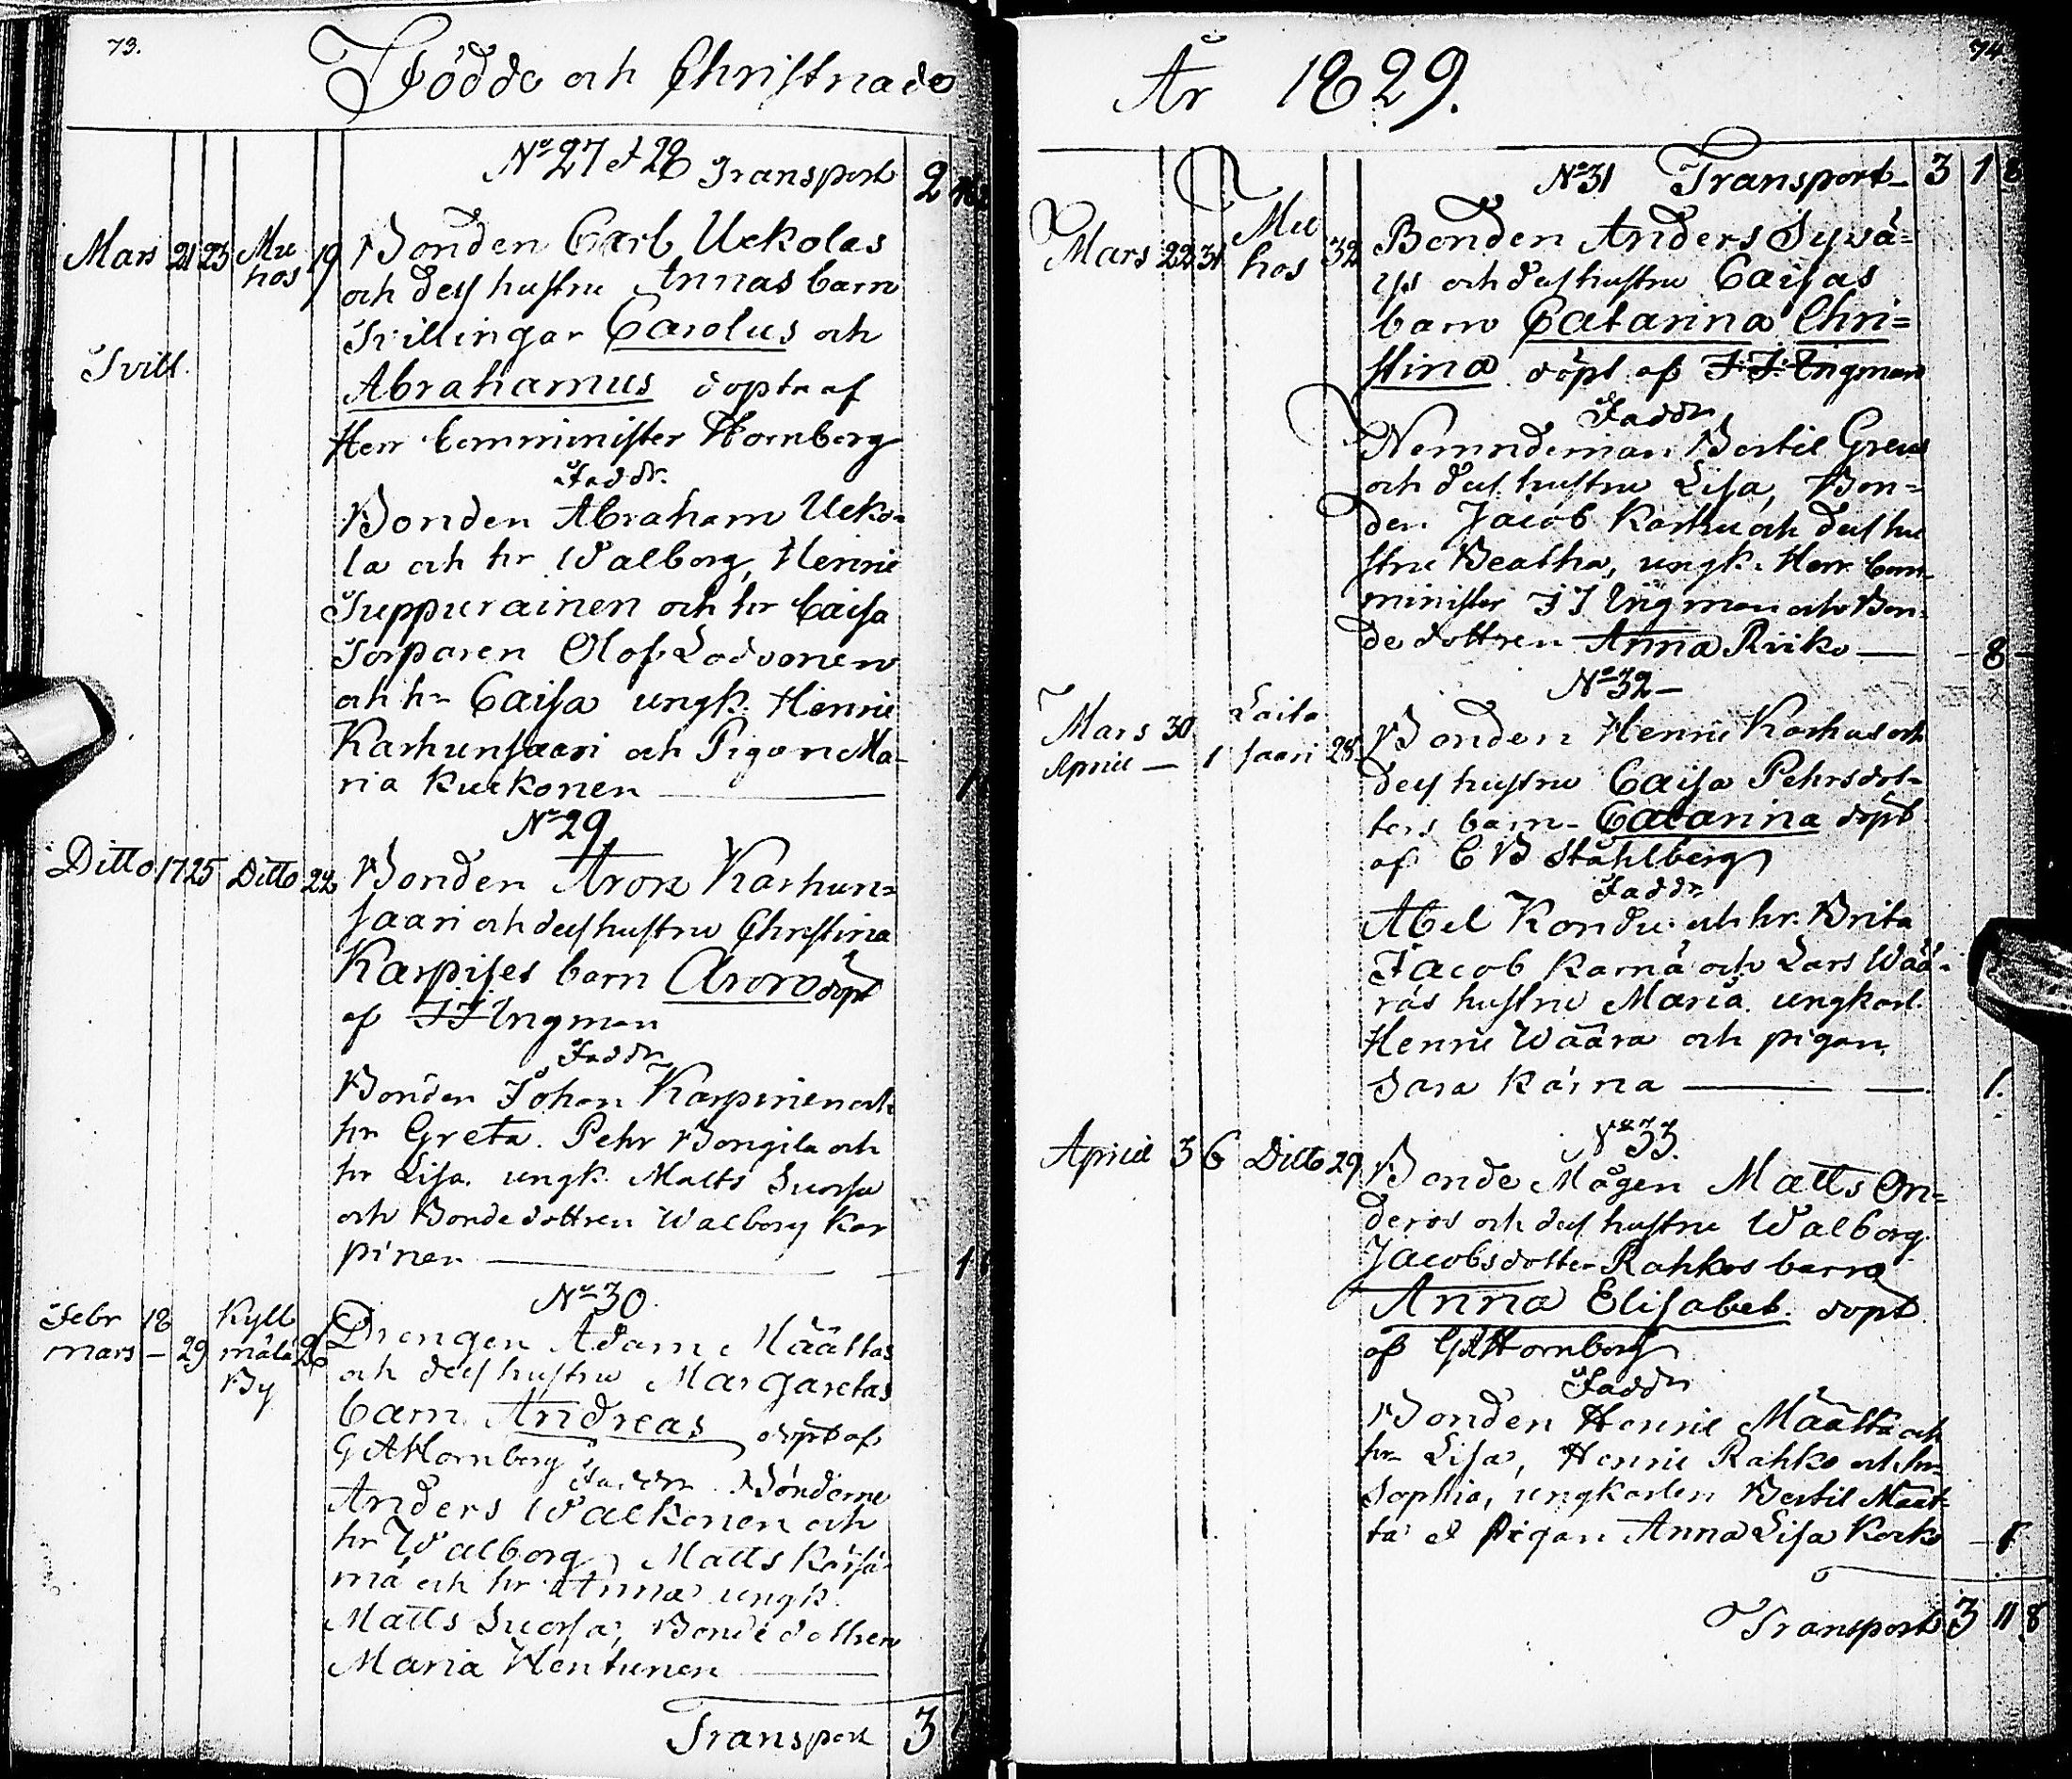 73.
Födde och Christnade
No 27 & 28 Transport 2
Mars 21 23 Mu 19 Bonden Carl Uckolas
hos och dess hustru Annas barn
Tvillingar Carolus och
Tvill. Abrahamus döpta af
Herr Comminister Hornborg
Faddr.
Bonden Abraham Ucko-
la och hr Walborg, Henric
Juppurainen och hr Caisa
Torparen Olof Lodvonen
och hr Caisa ungk. Henric
Karhunsaari och Pigan Ma-
ria Kuckonen
No 29
Ditto 17 25 Ditto 22 Bonden Aron Karhun-
saari och dess hustru Christina
Karpises barn Aron döpt
af J J Ingman
Faddr
Bonden Johan Karpinen och
hr Greta. Pehr Bongila och
hr Lisa. ungk. Matts Suorsa
och Bondedottren Walborg Kar
pinen
No 30.
Febr 18 Kyll
mars — 29 mälä 26
By
Drengen Adam Määttas
och dess hustru Margaretas
barn Andreas döpt af
G A Hornborg Faddr Bönderne
Anders Walkonen och
hr Walborg, Matts Kärsä-
mä och hr Anna ungk.
Matts Suorsa, Bondedottren
Maria Hentunen
Transport 3
74
År 1829.
No 31 Transport 3 1 8
Mars 22 31 Mu 32 Bonden Anders Sywä-
hos ys och dess hustru Caisas
barn Catarina Chri-
stina döpt af J. J. Ingman
Faddr
Nemndeman Bertil Greus
och dess hustru Lisa, Bon-
den Jacob Karhu och dess hu
stru Beatha, ungk. Herr Com-
minister J J Ingman och Bon-
de dottren Anna Riiko — 8 -
No 32 -
Mars 30 Laita
Aprill — 1 saari 28 Bonden Henric Karhus och
dess hustru Caisa Pehrsdot-
ters barn Catarina döpt
af C B Ståhlberg
Faddr
Abel Kondu och hr. Brita
Jacob Karnä och Lars Wää-
räs hustru Maria. ungkarl.
Henric Wäärä och pigan
Sara Kärnä — 1.
No 33.
Aprill 3 6 Ditto 29 Bonde Mågen Matts On-
deros och dess hustru Walborg
Jacobsdotter Rahkos barn
Anna Elisabet. döpt
af G A Hornborg
Faddr
Bonden Henric Määtta och
hr Lisa, Henric Rahko och hr
Sophia, ungkarlen Bertil Määt-
ta & Pigan Anna Lisa Korko
Transport 3 11 8